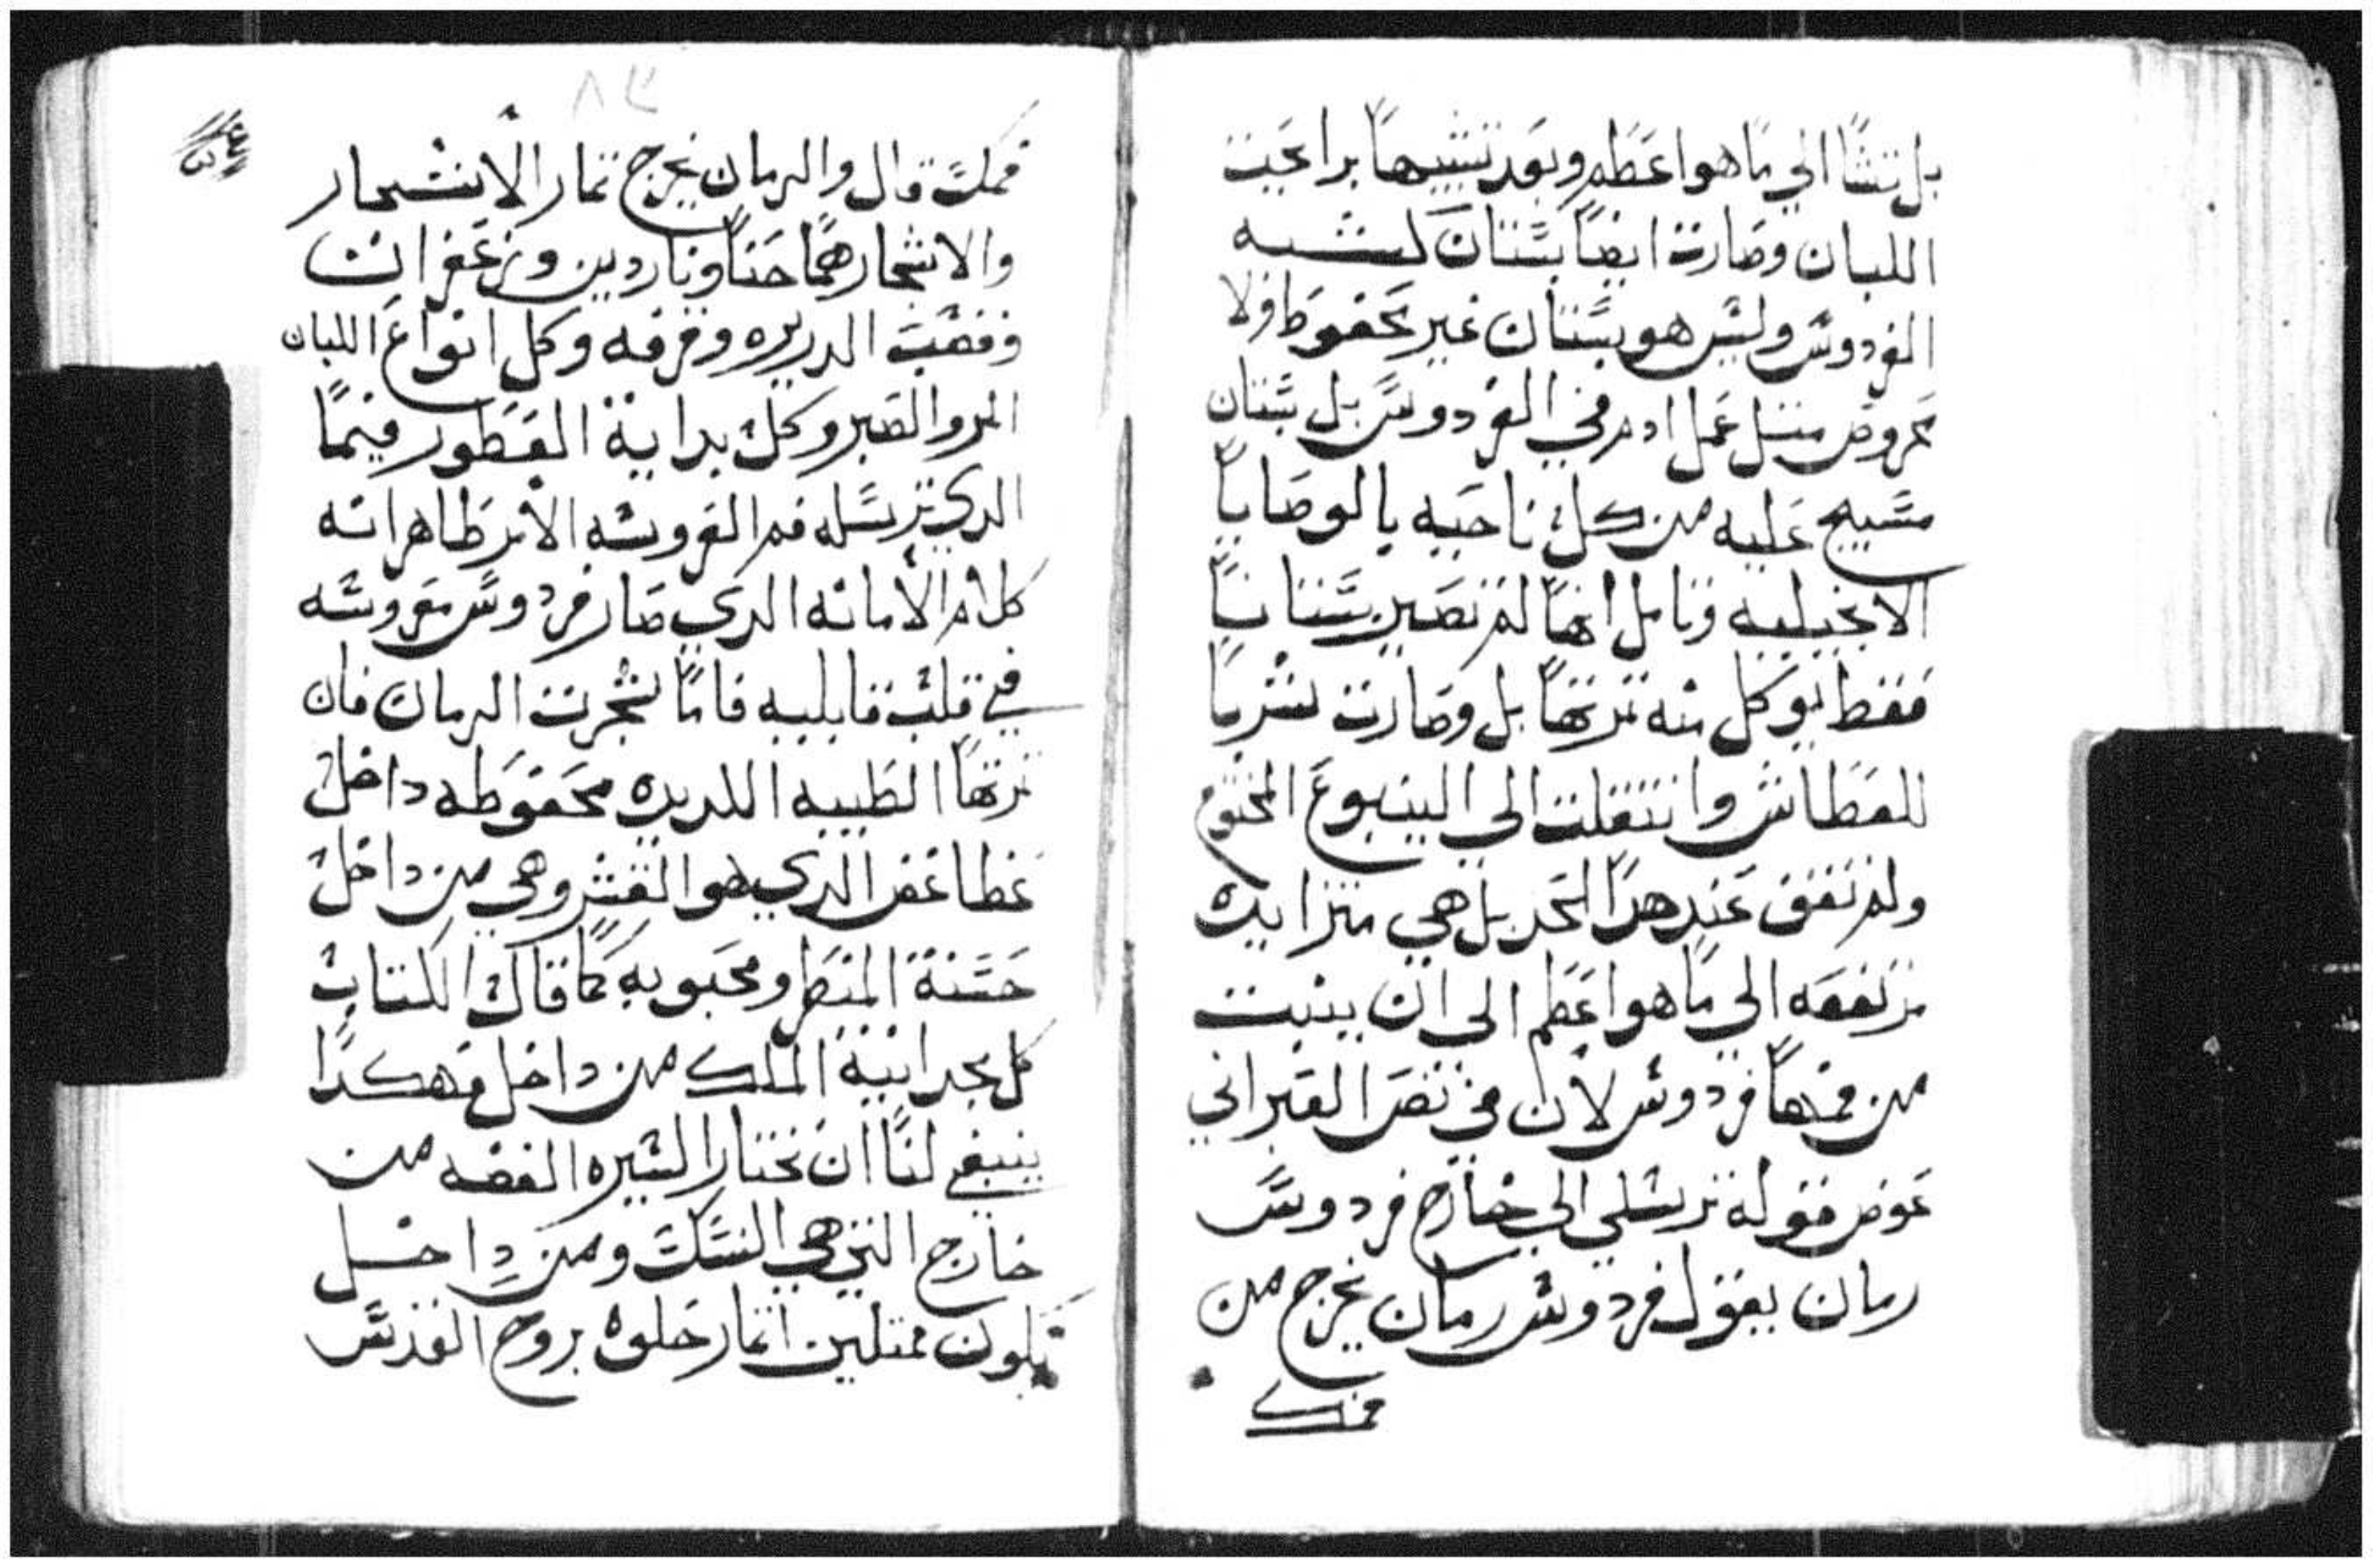 بل تنشا الي ما هو اعظم وبعد تشبيهها براعيت
اللبان وصارت ايضا بستان ليشبه
الفردوس وليس هو بستان غير محفوظ فلا
محروص متل عمل ادم في الفردوس بل بستان
مسيج عليه من كل ناحيه بالوصايا
الانجيليه وتامل انها لم تصير بستانا
فقط يوكل منه ثمرتها بل وصارت شربا
للعطاش وانتقلت الي الينبوع المختوم
ولم تقف عند هدا الحد بل هي متزايده
مرتفعه الي ما هو اعظم الي ان ينبت
من فمها فردوس لان في نص العبراني
عوض قوله ترسلي الي خارج فردوس
رمان يقول فردوس رمان يخرج من
فمك
فمك قال والرمان يخرج تمار الانشجار
والانشجار هما حنا وناردين وزعفران
وقصب الدريره وقرفه وكل انواع اللبان
المر والصبر وكل بداية العطور فيما
الدي ترسله فم العروسه الامر ظاهر انه
كلام الامانه الدي صار فردوس مغروسه
في قلب قابليه فاما شجرت الرمان فان
ثمرتها الطيبه اللديده محفوظه داخل
غطا عفص الدي هو القشر وهي من داخل
حسنة المنظر ومحبوبه كما قال الكتاب
كل مجد ابنة الملك من داخل فهكدا
ينبغي لنا ان نختار السيره العفصه من
خارج التي هي النسك ومن داخل
يكون ممتلين اتمار حلوه بروح القدس